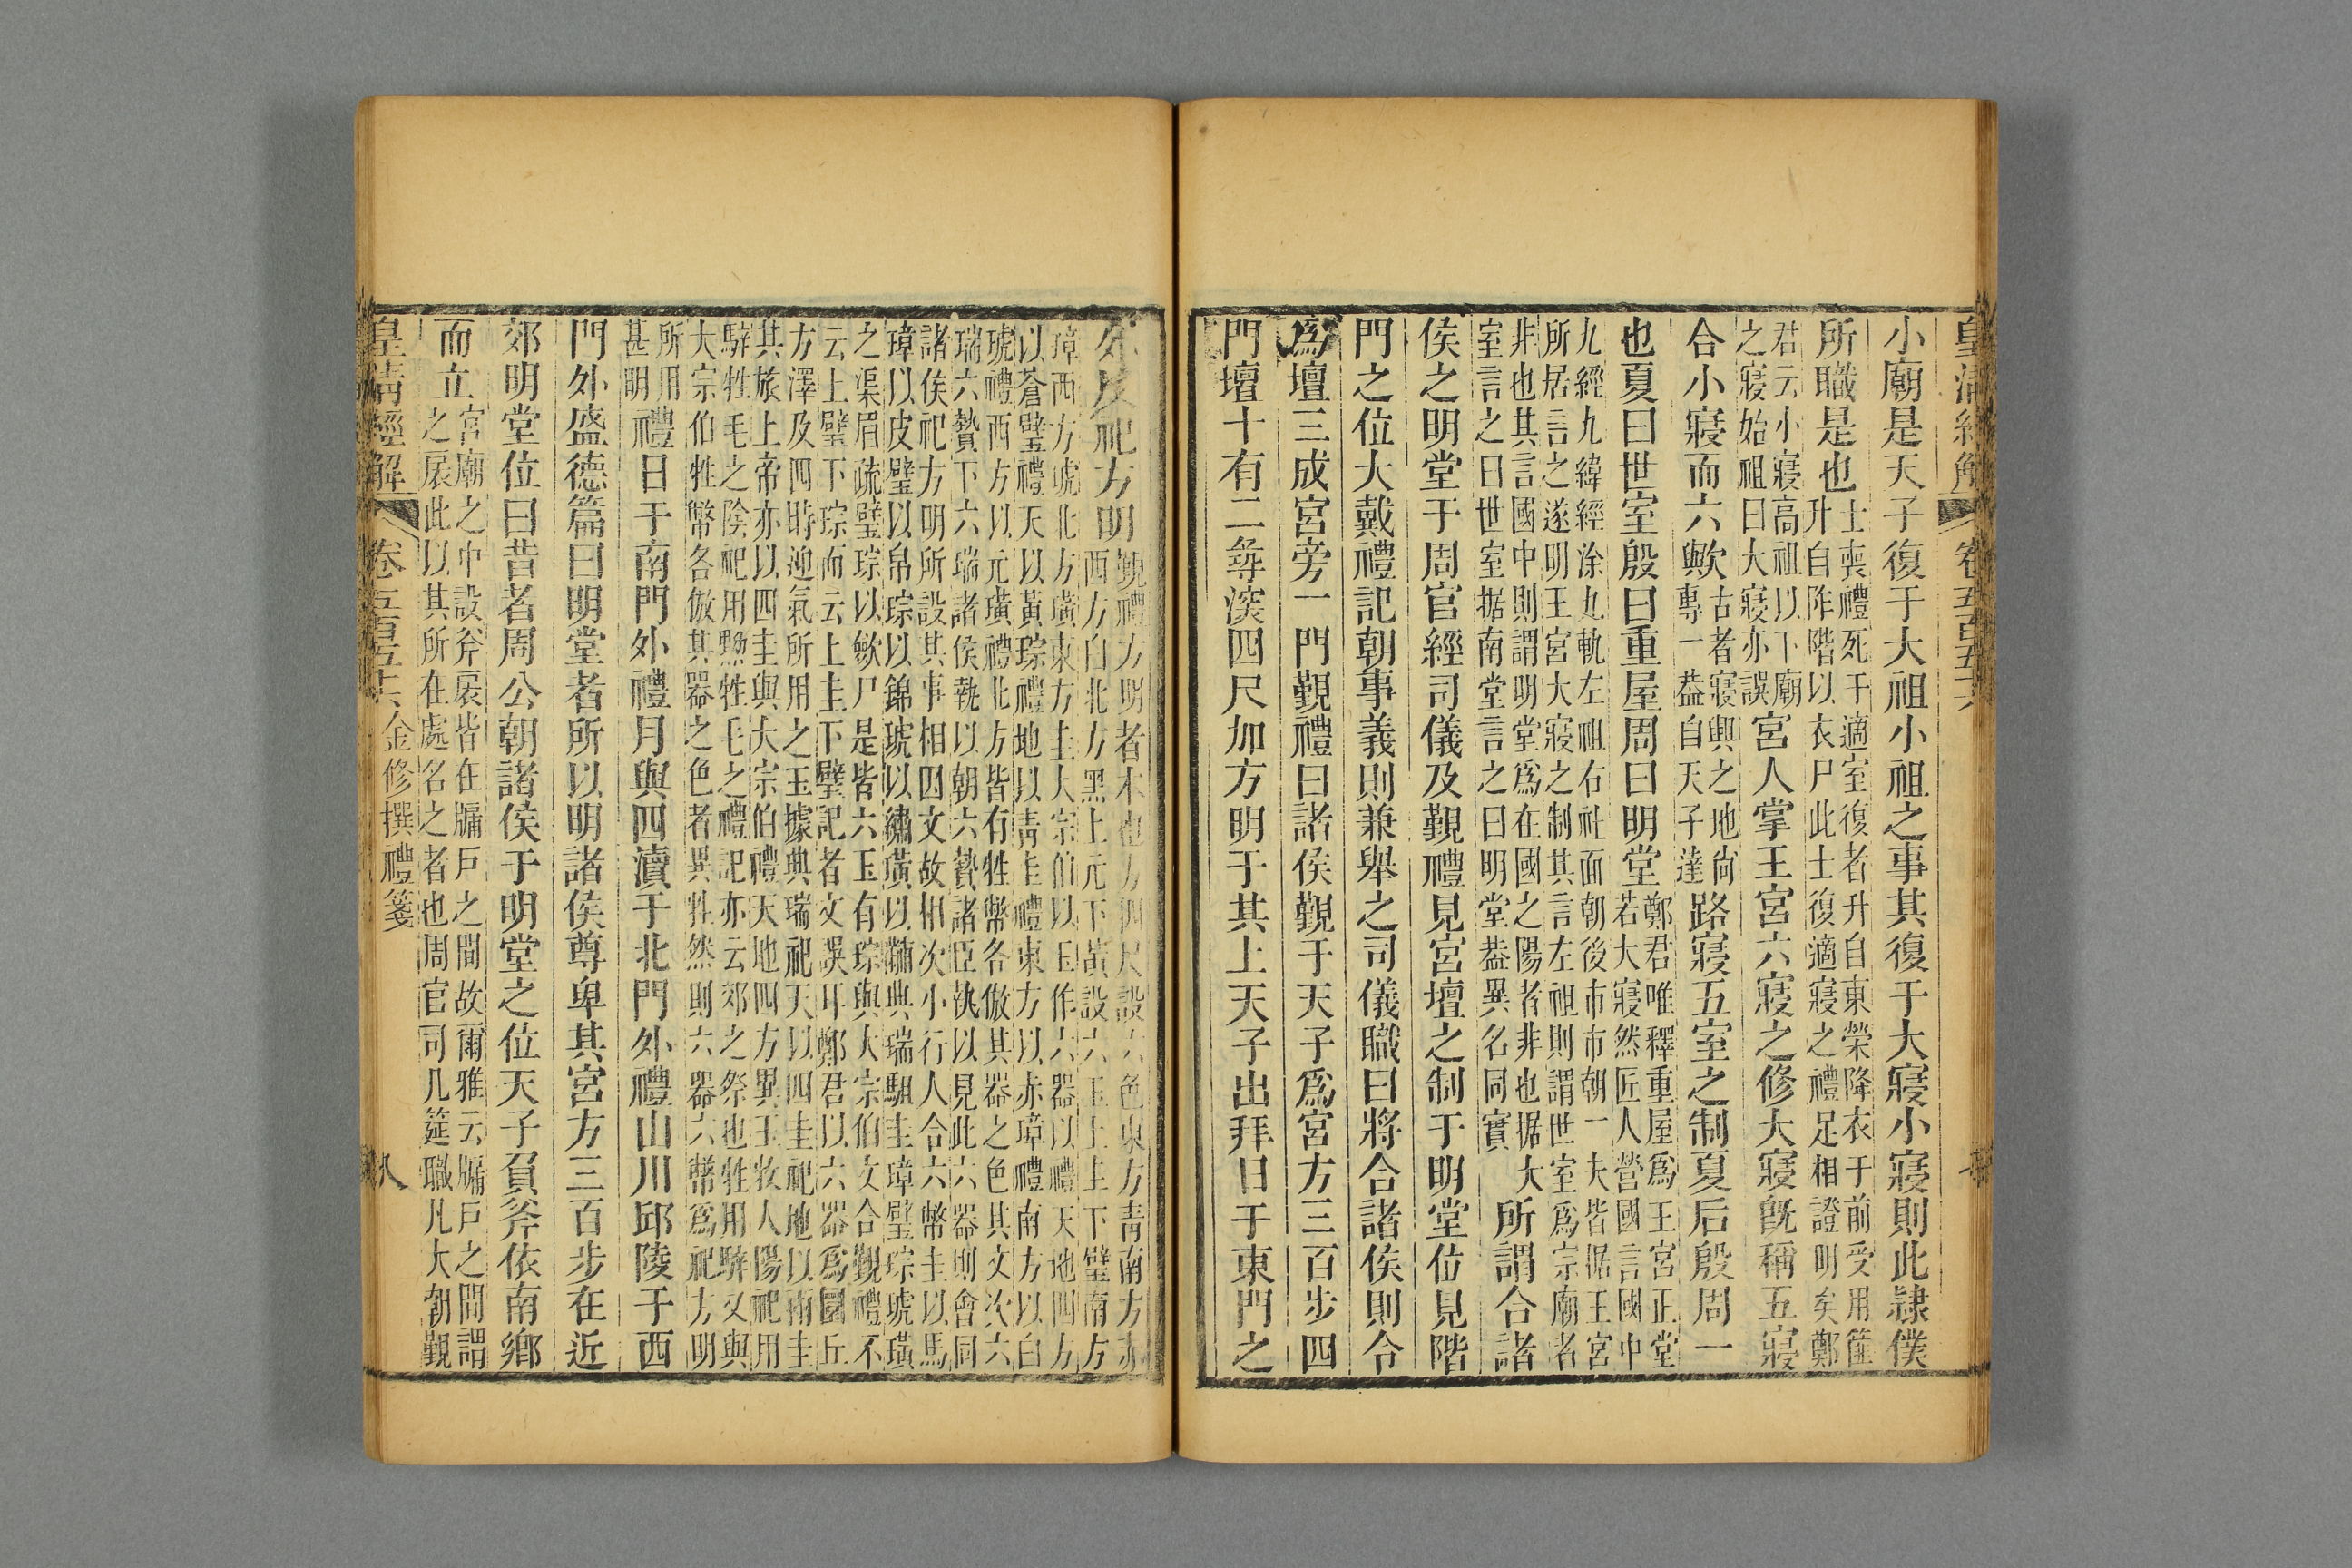 皇清經解 卷五百五十六
小廟是天子復于大祖小祖之事其復于大寢小寢則此隷僕
所職是也士喪禮死于適室復者升自東榮降衣于前受用篚升自阼階以衣尸此士復適寢之禮足相證明矣鄭
君云小寢高祖以下廟之寢始祖曰大寢亦誤宮人掌王宮六寢之修大寢旣稱五寢
合小寢而六歟古者寢與之地尙專一葢自天子達路寢五室之制夏后殷周一
也夏曰世室殷曰重屋周曰明堂鄭君唯釋重屋爲王宮正堂若大寢然匠人營國言國中
九經九緯經涂九軌左祖右社面朝後市市朝一夫皆据王宮所居言之遂明王宮大寢之制其言左祖則謂世室爲宗廟者
非也其言國中則謂明堂爲在國之陽者非也据大室言之曰世室据南堂言之曰明堂葢異名同實所謂合諸
侯之明堂于周官經司儀及覲禮見宮壇之制于明堂位見階
門之位大戴禮記朝事義則兼舉之司儀職曰將合諸侯則令
爲壇三成宮旁一門覲禮曰諸侯覲于天子爲宮方三百步四
門壇十有二尋深四尺加方明于其上天子出拜日于東門之
外反祀方明覲禮方明者木也方四尺設六色東方靑南方赤西方白北方黑上元下黃設六玉上圭下璧南方
璋西方琥北方璜東方圭大宗伯以玉作六器以禮天地四方以蒼璧禮天以黃琮禮地以靑圭禮東方以赤璋禮南方以白
琥禮西方以元璜禮北方皆有牲幣各倣其器之色其文次六瑞六贄下六瑞諸侯執以朝六贄諸臣執以見此六器則會同
諸侯祀方明所設其事相因文故相次小行人合六幣圭以馬璋以皮璧以帛琮以錦琥以繡璜以黼典瑞駔圭璋璧琮琥璜
之渠眉疏璧琮以斂尸是皆六玉有琮與大宗伯文合覲禮不云上璧下琮而云上圭下璧記者文誤耳鄭君以六器爲圜丘
方澤及四時迎氣所用之玉據典瑞祀天以四圭祀地以兩圭其旅上帝亦以四圭與大宗伯禮天地四方異王牧人陽祀用
騂牲毛之陰祀用黝牲毛之禮記亦云郊之祭也牲用騂又與大宗伯牲幣各倣其器之色者異牲然則六器六幣爲祀方明
所用甚明禮日于南門外禮月與四瀆于北門外禮山川邱陵于西
門外盛德篇曰明堂者所以明諸侯尊卑其宮方三百步在近
郊明堂位曰昔者周公朝諸侯于明堂之位天子負斧依南鄉
而立宮廟之中設斧扆皆在牖戶之間故爾雅云牖戶之間謂之扆此以其所在處名之者也周官司几筵職凡大朝覲
皇清經解 卷五百五十六 金修撰禮箋 八